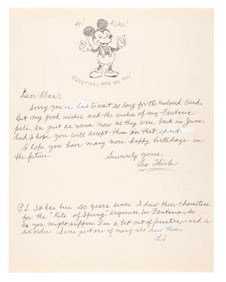 Hi! Alan!
GREETINGS HAVE FOR YOU!
Dear Alan;
Sorry you've had to wait so long for the enclosed card.
But my good wishes and the wishes of my Fantasia
pals, are just as warm now as they were back in June
And I hope you will accept them in that spirit.
I hope you have many more happy birthdays in
the future.
Sincerely yours,
P.S. It has been 40 years since I drew these characters
for the "Rite of Spring" sequence in Fantasia, so
as you might suppose I'm a bit out of practice - and a
bit older. I was just one of many who drew them.